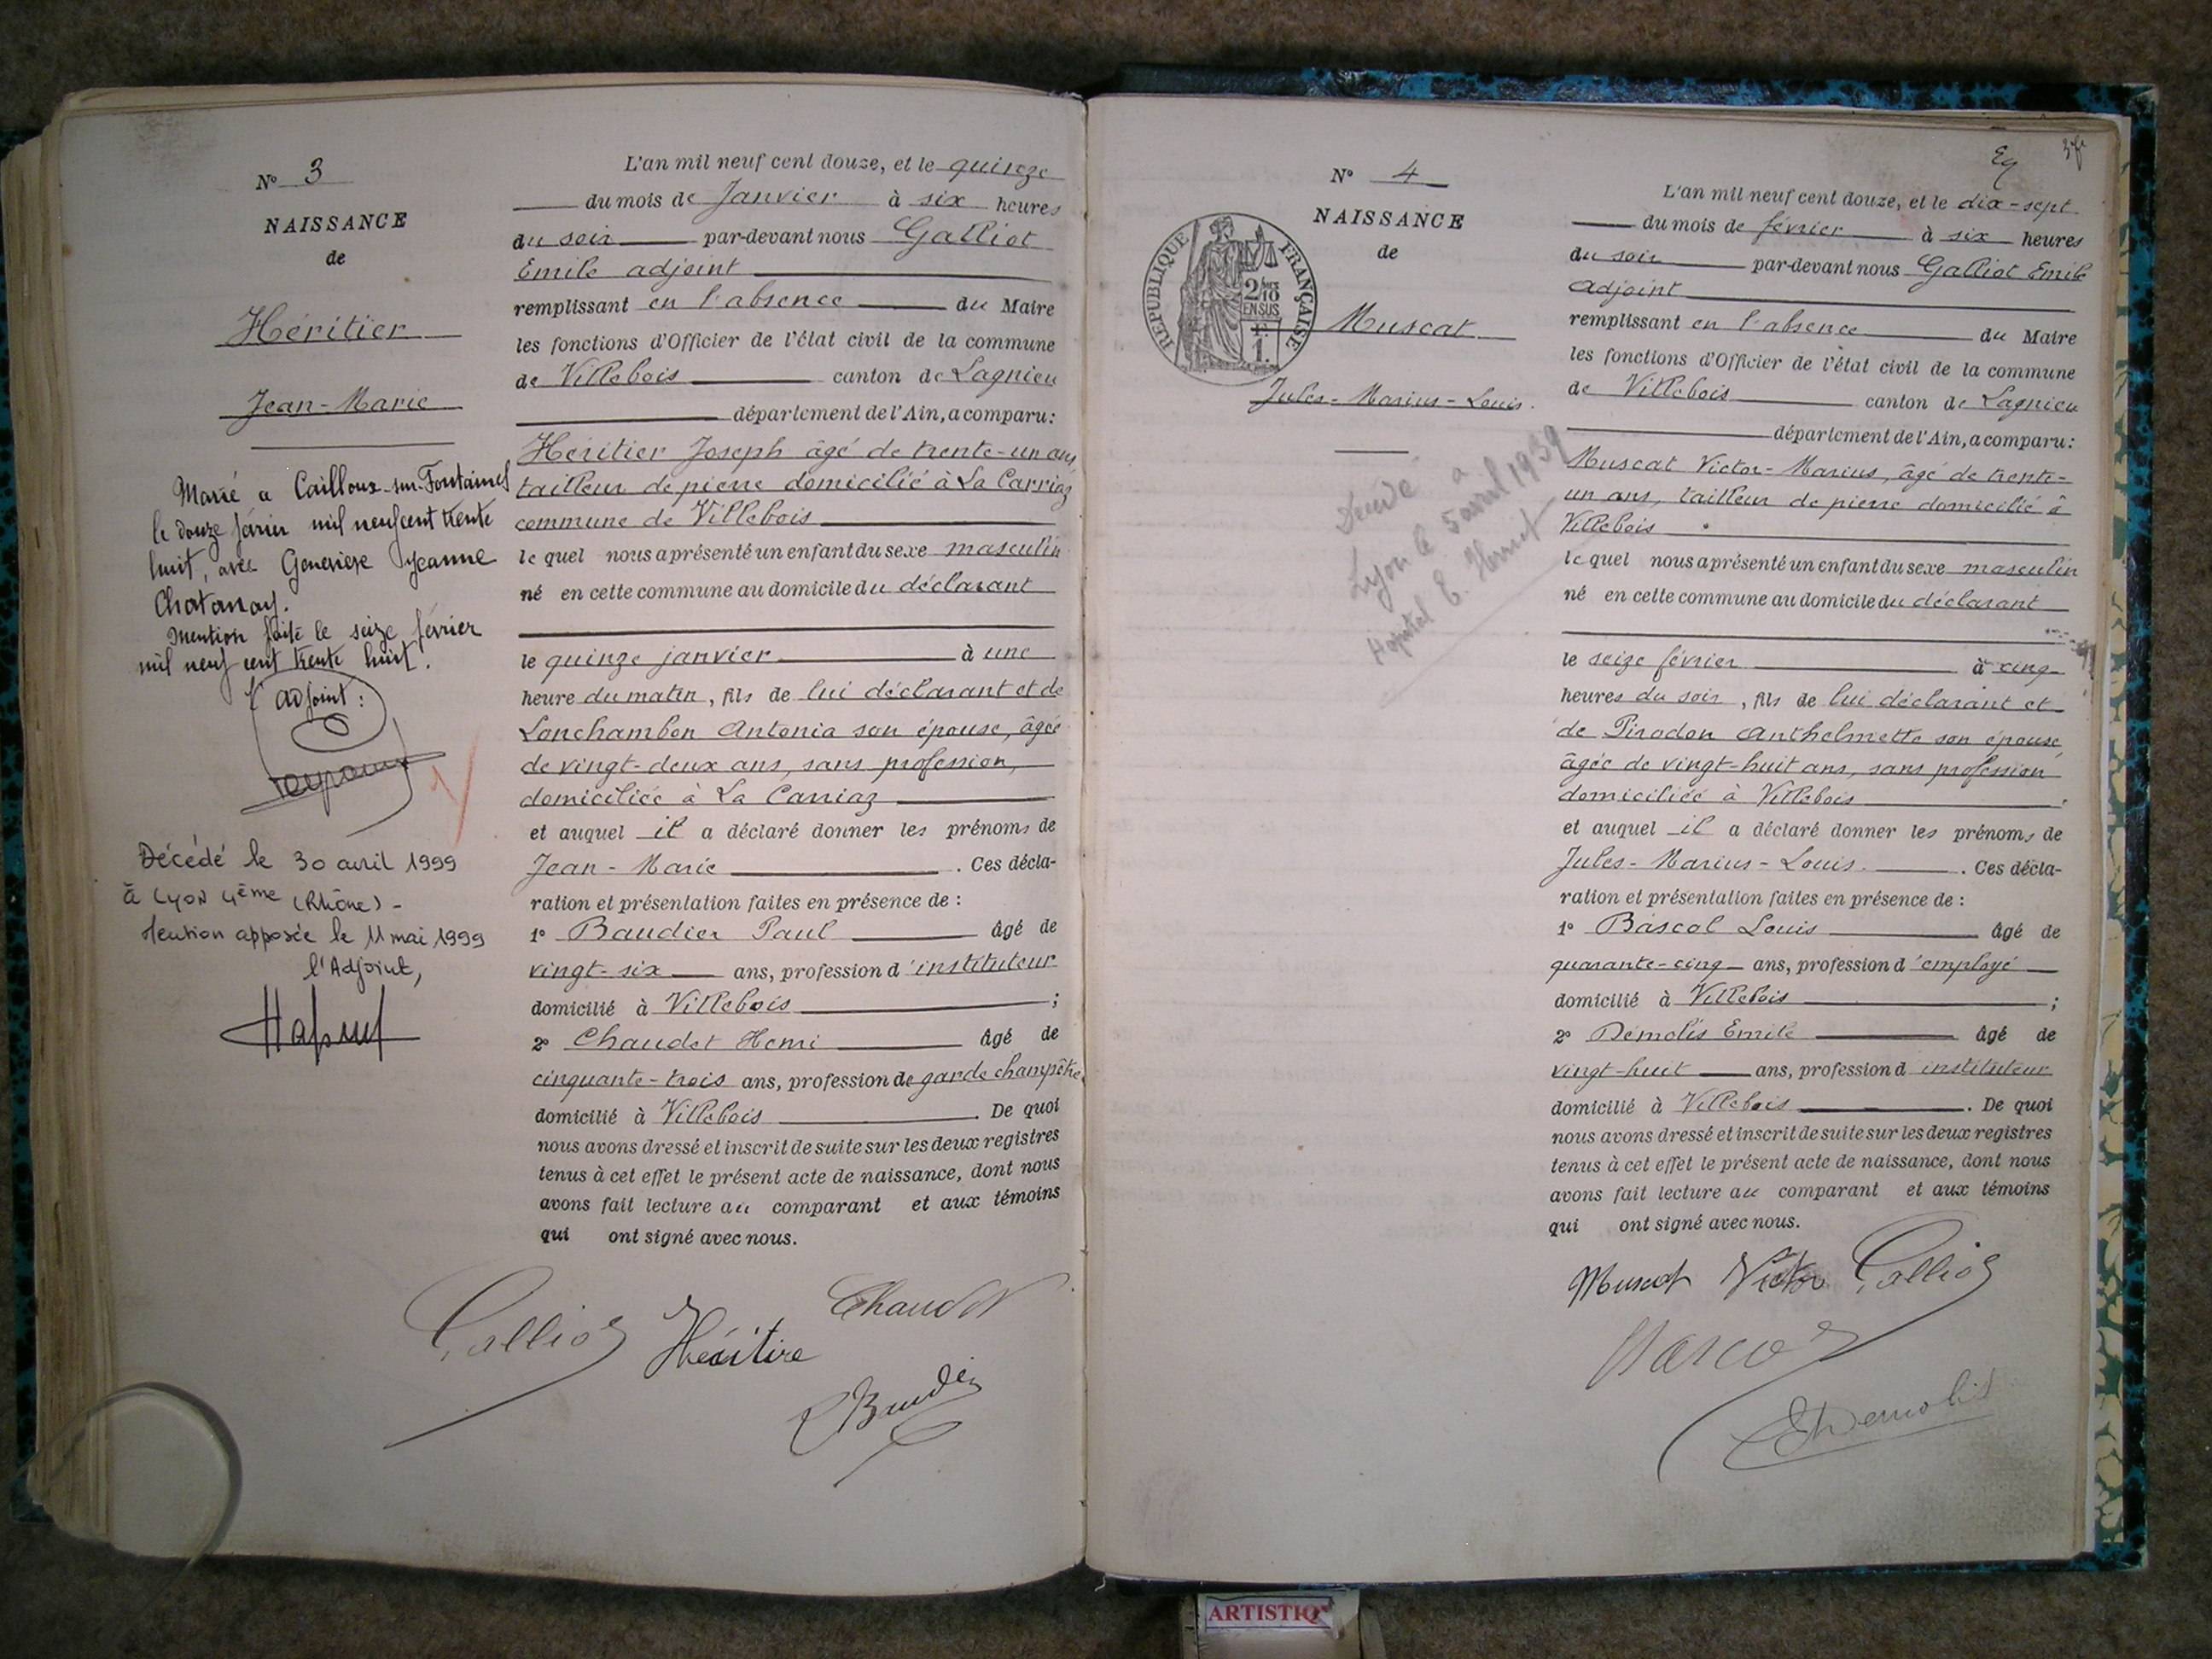 N° 3
NAISSANCE
de
Héritier
Jean-Marie
Marié a Cailloux-sur-Fontaines
le douze février mil neuf cent trente
huit, avec Geneviève Jeanne
Chatanay.
Mention faite le seize février
mil neuf cent trente huit.
l'adjoint :
Décédé le 30 avril 1999
à Lyon 4ème (Rhône) -
Mention apposée le 11 mai 1999
l'Adjoint,
L'an mil neuf cent douze, et le quinze
du mois de Janvier à six heures
du soir par-devant nous Galliot
Emile adjoint
remplissant en l'absence du Maire
les fonctions d'Officier de l'état civil de la commune
de Villebois canton de Lagnieu
département de l'Ain, a comparu :
Héritier Joseph âgé de trente-un ans,
tailleur de pierre domicilié à La Carriaz
commune de Villebois
le quel nous a présenté un enfant du sexe masculin
né en cette commune au domicile du déclarant
le quinze janvier à une
heure du matin, fils de lui déclarant et de
Lonchambon Antonia son épouse, âgée
de vingt-deux ans, sans profession,
domiciliée à La Carriaz
et auquel il a déclaré donner les prénoms de
Jean-Marie . Ces décla-
ration et présentation faites en présence de :
1° Baudier Paul âgé de
vingt-six ans, profession d'instituteur
domicilié à Villebois ;
2° Chaudet Henri âgé de
cinquante-trois ans, profession de garde champêtre
domicilié à Villebois . De quoi
nous avons dressé et inscrit de suite sur les deux registres
tenus à cet effet le présent acte de naissance, dont nous
avons fait lecture au comparant et aux témoins
qui ont signé avec nous.
Galliot Héritire Chaudet
Baudier
Eq
N° 4
NAISSANCE
de
RÉPUBLIQUE FRANÇAISE
2/10
EN SUS
1.
Muscat
Jules-Marius-Louis.
Décédé à
Lyon le 5 avril 1939
Hopital E. Herriot
L'an mil neuf cent douze, et le dix-sept
du mois de février à six heures
du soir par-devant nous Galliot Emile
adjoint
remplissant en l'absence du Maire
les fonctions d'Officier de l'état civil de la commune
de Villebois canton de Lagnieu
département de l'Ain, a comparu :
Muscat Victor-Marius, âgé de trente-
un ans, tailleur de pierre domicilié à
Villebois
le quel nous a présenté un enfant du sexe masculin
né en cette commune au domicile du déclarant
le seize février à cinq
heures du soir, fils de lui déclarant et
de Pirodon Anthelmette son épouse
âgée de vingt-huit ans, sans profession
domiciliée à Villebois
et auquel il a déclaré donner les prénoms de
Jules-Marius-Louis. . Ces décla-
ration et présentation faites en présence de :
1° Bascol Louis âgé de
quarante-cinq ans, profession d'employé
domicilié à Villebois ;
2° Démolis Emile âgé de
vingt-huit ans, profession d instituteur
domicilié à Villebois . De quoi
nous avons dressé et inscrit de suite sur les deux registres
tenus à cet effet le présent acte de naissance, dont nous
avons fait lecture au comparant et aux témoins
qui ont signé avec nous.
Muscat Victor Galliot
EDemolis
ARTISTIQ